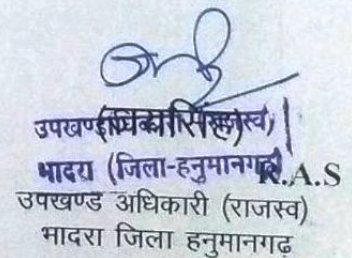 उपखण्ड
भादरा (जिला-हनुमानगढ़) R.A.S
उपखण्ड अधिकारी (राजस्व)
भादरा जिला हनुमानगढ़